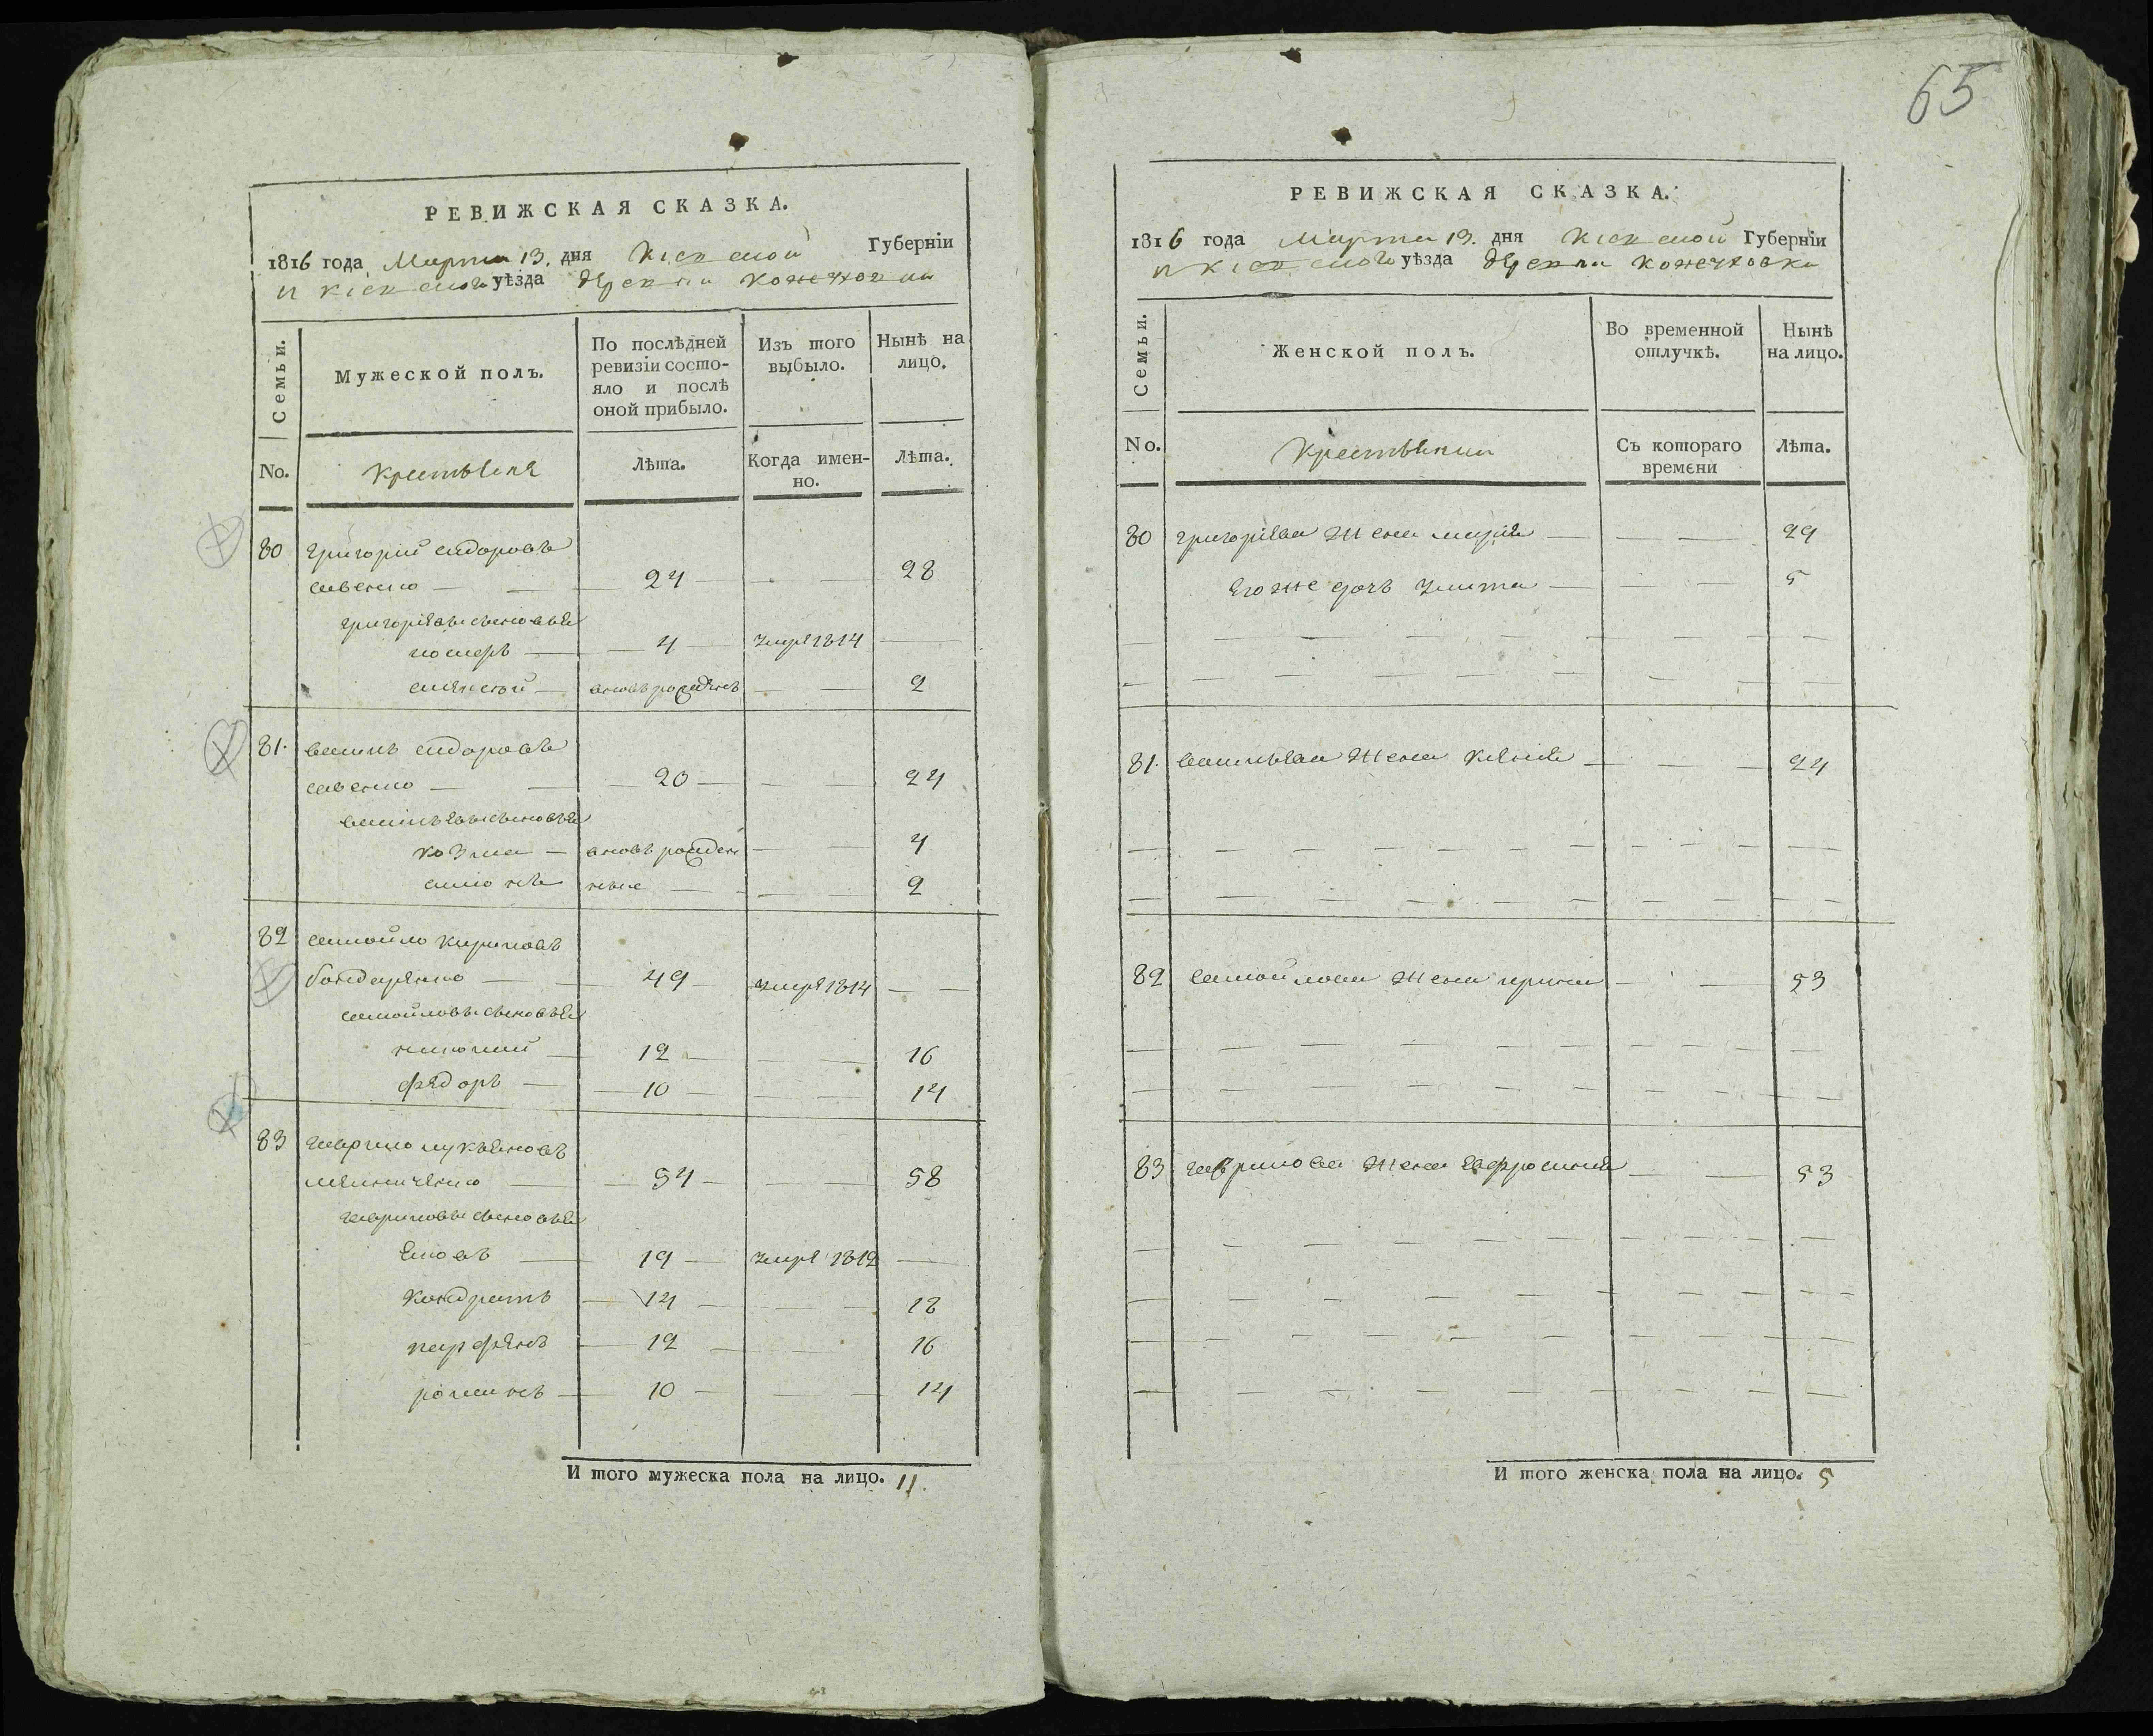 РЕВИЖСКАЯ СКАЗКА.
1816 года Марта 13. дня Кіевской Губерніи
и Кіевского уѣзда деревни Кожуховки
Семьи.
Мужеской полъ.
По послѣдней ревизіи состо-
яло и послѣ
оной прибыло.
Изъ того
выбыло.
Нынѣ на
лицо.
No.
Крестьяне
Лѣта.
Когда имен-
но.
Лѣта.
80 григорій сидоровъ
савенко — 24 — 28
григоріевы сыновья
4 — умре 1814 —
вновь рожденъ — 2
81. василь сидоровъ
савенко — 20 — 24
васильевы сыновья
козма — вновь рожден — 4
ные — 2
82 самойло кириловъ
бондаренко — 49 — умре 1814 —
самойловы сыновья
николай — 12 — 16
федоръ — 10 — 14
83 гаврило лукьяновъ
мелниченко — 54 — 58
гавриловы сыновья
яковъ — 19 — умре 1812 —
кондратъ — 14 — 18
парфенъ — 12 — 16
романъ — 10 — 14
И того мужеска пола на лицо. 11.
65
РЕВИЖСКАЯ СКАЗКА.
1816 года Марта 13. дня Кіевской Губерніи
и Кіевского уѣзда деревни Кожуховки
Семьи.
Женской полъ.
Во временной
отлучкѣ.
Нынѣ
на лицо.
No.
Крестьянки
Съ котораго
времени
Лѣта.
80 григоріева жена марія — 29
Его же дочь — 5
81. васильева жена ксенія — 24
82 самойлова жена ирина — 53
83 гаврилова жена ефросинія — 53
И того женска пола на лицо. 5